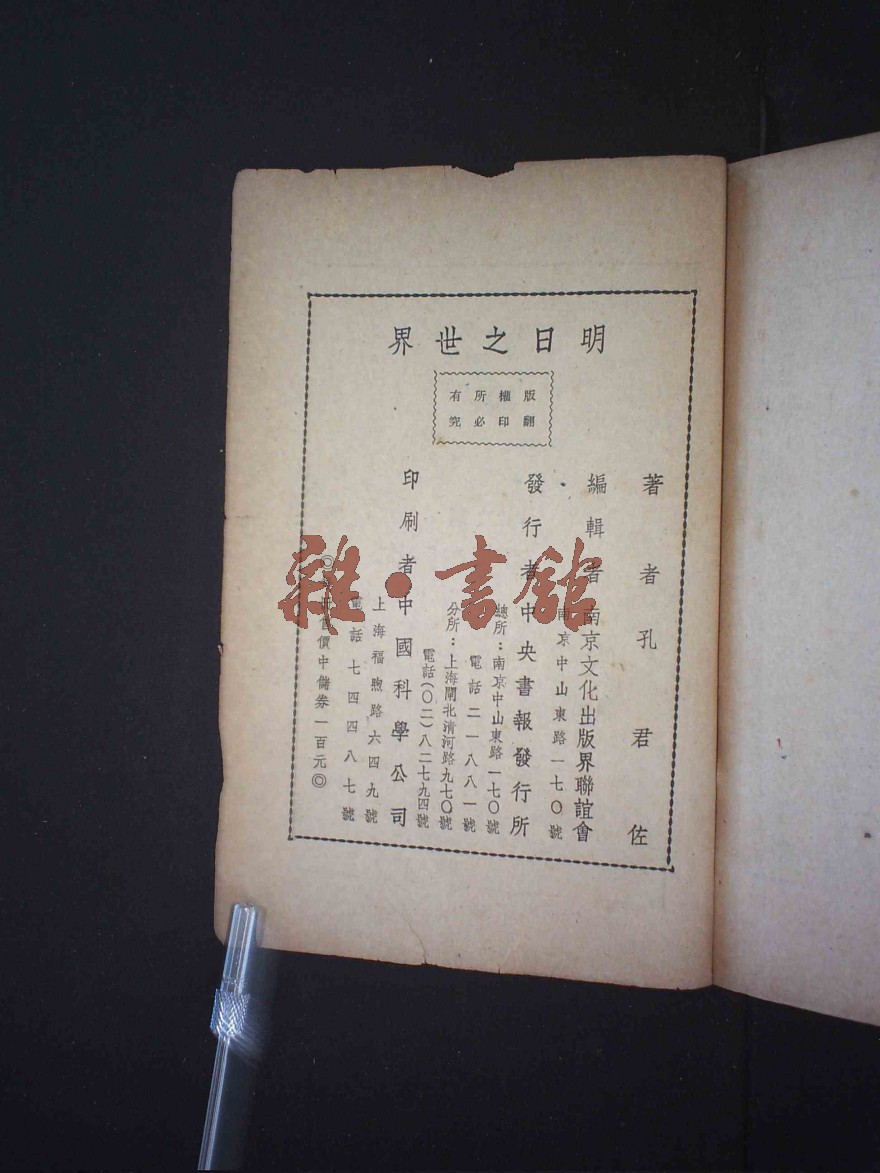 明日之世界
版權所有
翻印必究
著者 孔君佐
編輯者 南京文化出版界聯誼會
南京中山東路一七〇號
發行者 中央書報發行所
總所：南京中山東路一七〇號
電話二一八八一號
分所：上海閘北清河路九七〇號
電話(〇二)八二七九四號
印刷者 中國科學公司
上海福煦路六四九號
電話七四四八七號
◎ 價中儲券一百元◎
雜·書館